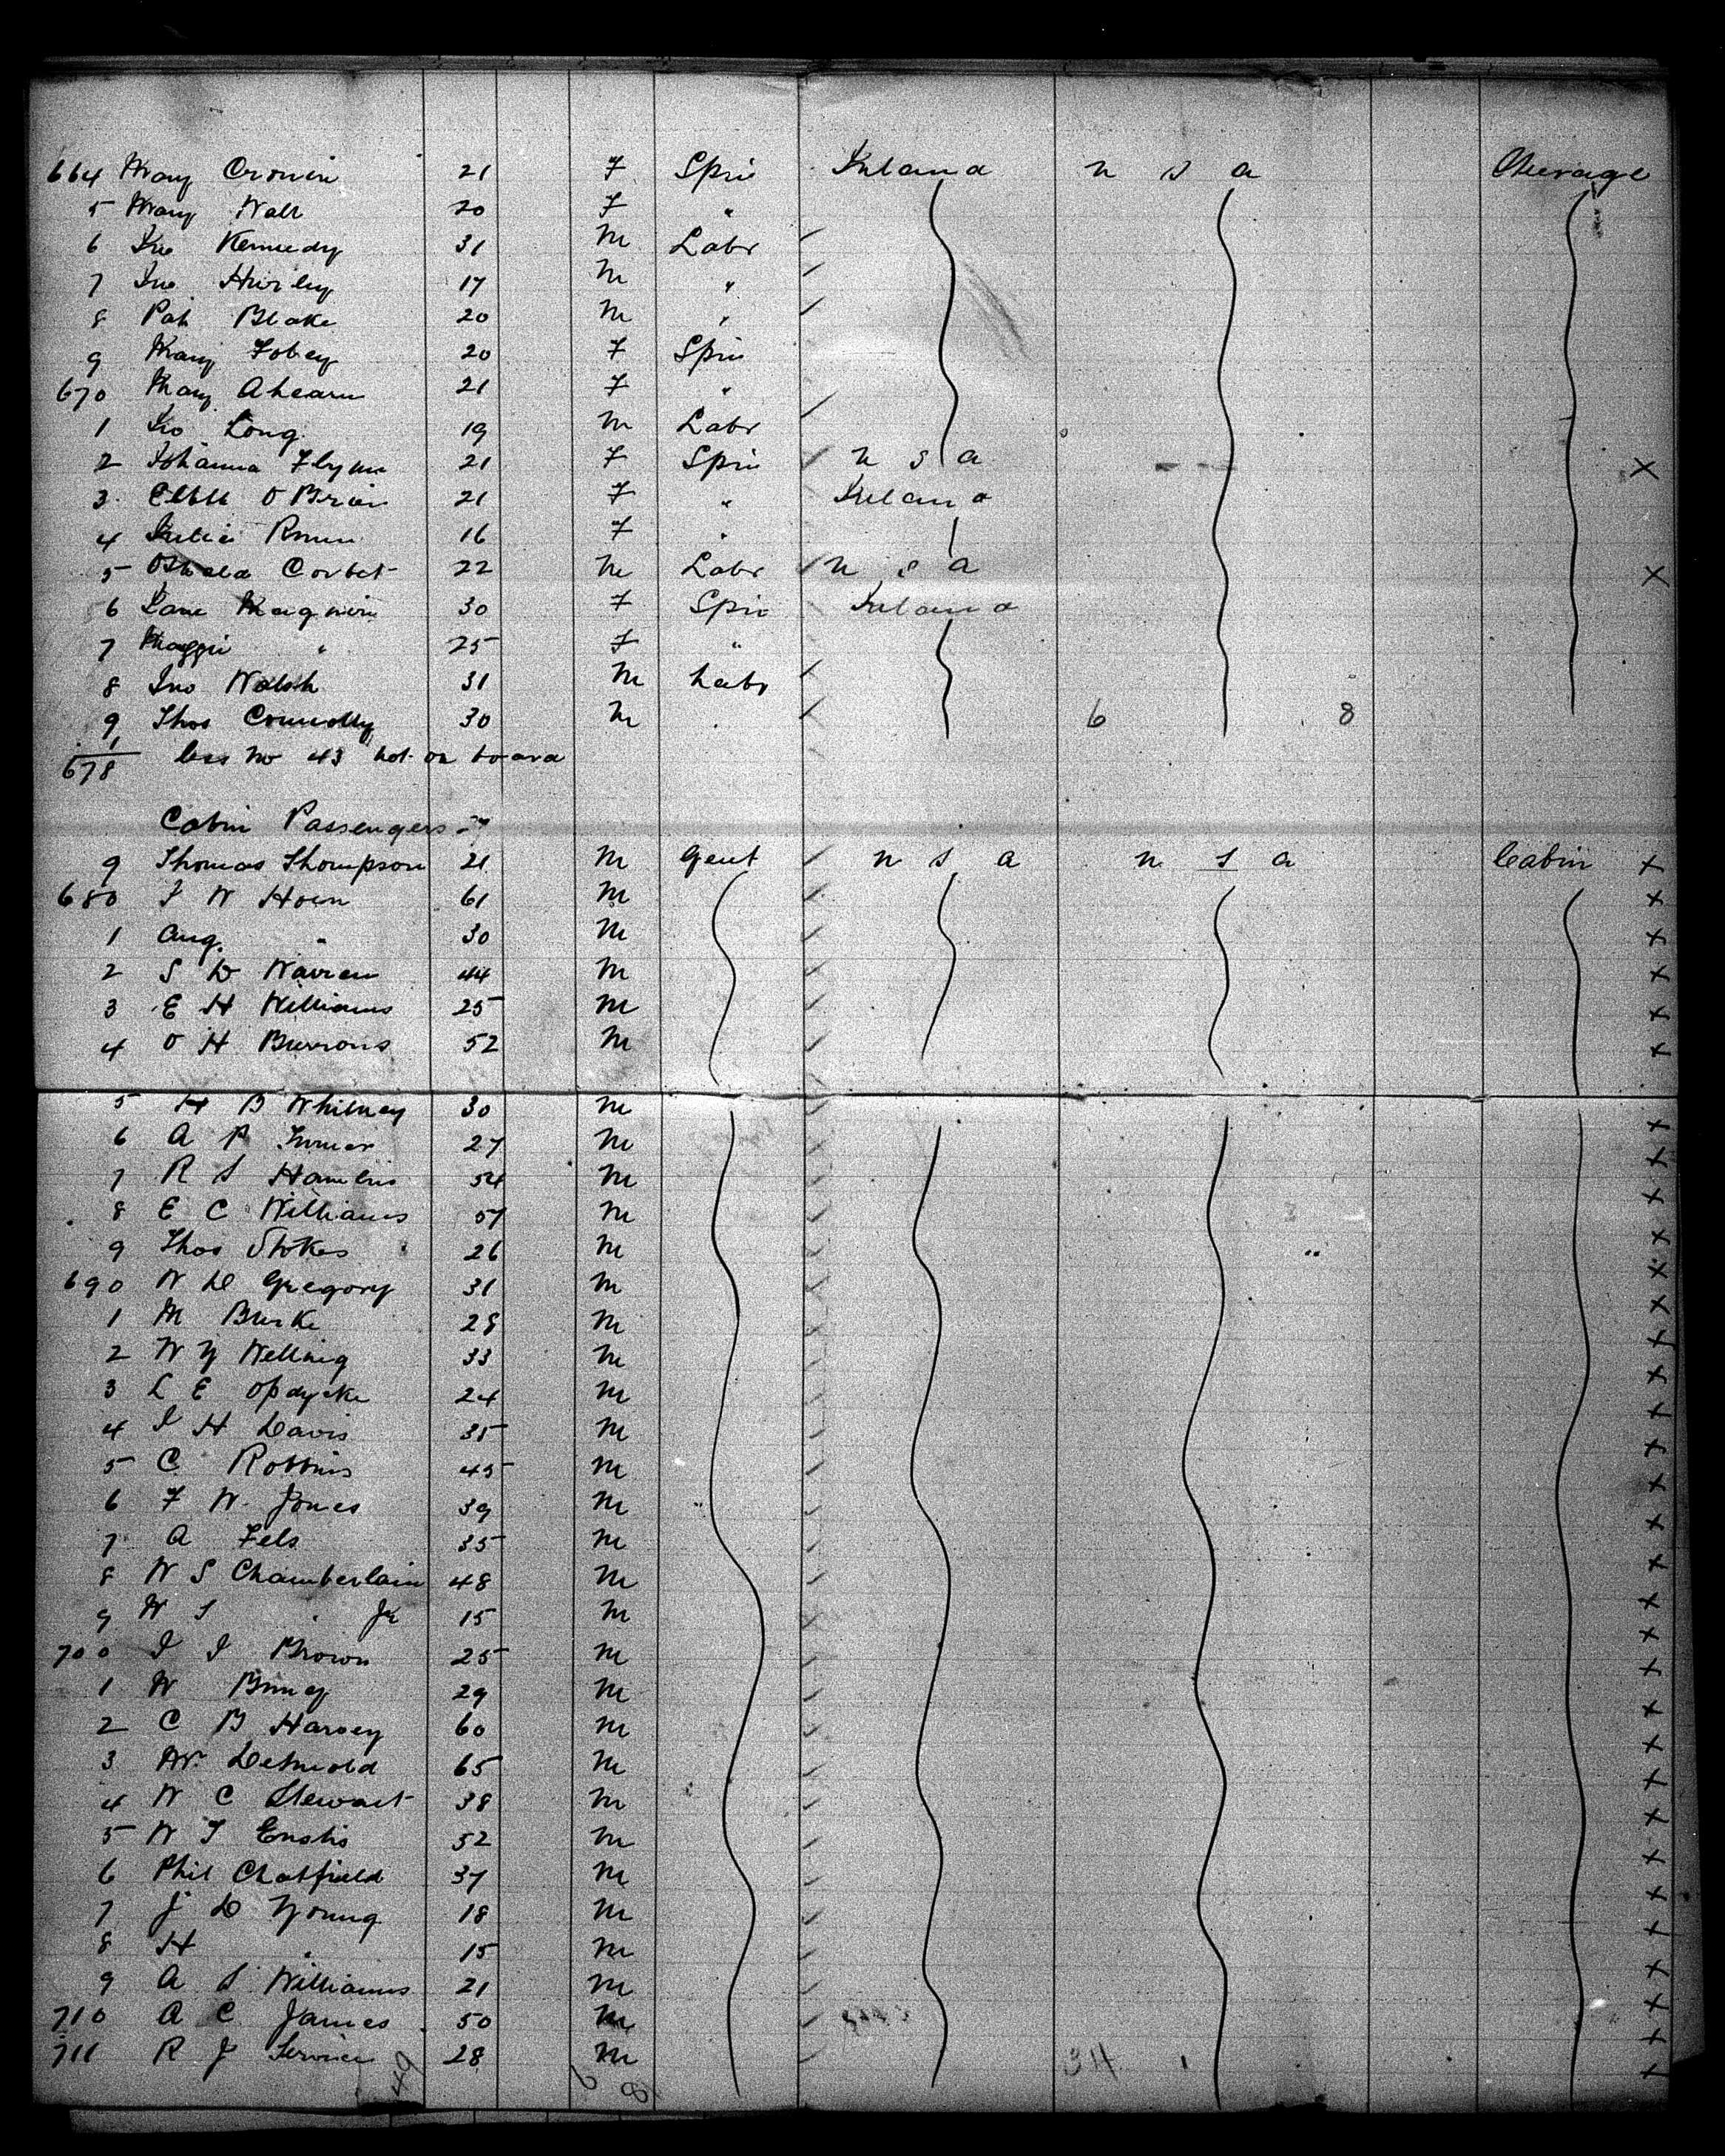 664 Mary Cronin 21 F Spin Ireland U S A Steerage
5 Mary Wall 20 F "
6 Jno Kennedy 31 M Labr
7 Jno Hurley 17 M "
8 Pat Blake 20 M "
9 Mary Tobey 20 F Spin
670 Mary Ahearn 21 F "
1 Jno Long 19 M Labr
2 Johanna Flynn 21 F Spin U S A X
3 O Brien 21 F " Ireland
4 Julia 16 F "
5 Corbet 22 M Labr U S A X
6 Jane 30 F Spin Ireland
7 Maggie " 25 F "
8 Jno Walsh 31 M Labr
9 Thos Connolly 30 M 6 8
1 less No 43 not on board
678
Cabin Passengers
9 Thomas Thompson 21 M Gent U S A U S A Cabin X
680 J W 61 M X
1 Aug. " 30 M X
2 S D Warren 44 M X
3 E H Williams 25 M X
4 O H Burrows 52 M X
5 H B Whitney 30 M X
6 A P Turner 27 M X
7 R S Hamlin 54 M X
8 E C Williams 57 M X
9 Thos Stokes 26 M X
690 W D Gregory 31 M X
1 M Burke 28 M X
2 W Y Welling 33 M X
3 L E Opdycke 24 M X
4 J H Davis 35 M X
5 C Robbins 45 M X
6 F W Jones 39 M X
7 A Fels 35 M X
8 W S Chamberlain 48 M X
9 W S " Jr 15 M X
700 J J Brown 25 M X
1 W Binney 29 M X
2 C B Harvey 60 M X
3 W. Detmold 65 M X
4 W C Stewart 38 M X
5 W T Enstis 52 M X
6 Phil Chatfield 37 M X
7 J D Young 18 M X
8 H " 15 M X
9 A S Williams 21 M X
710 A C James 50 M X
711 R J 28 M 34 X